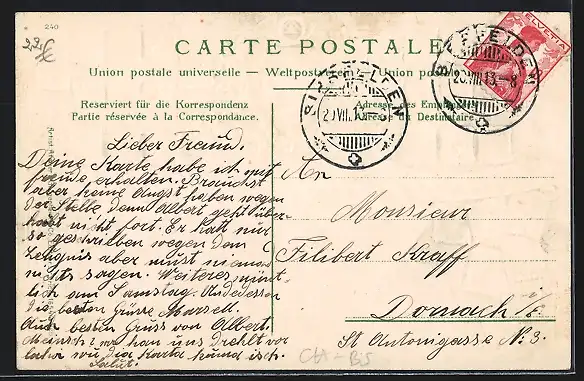 240
2.2.
CARTE POSTALE
Union postale universelle — Weltpostverein — Union postale
HELVETIA
SIERENTZ
Reserviert für die Korrespondenz
Partie réservée à la Correspondance.
Adresse des Empfängers
du Destinataire
Lieber Freund.
Deine Karte habe ich mit
freude erhalten. Brauchst
aber keine Angst haben wegen
der Stelle denn Albert geht über
haupt nicht fort. Er hat nur
so geschrieben wegen dem
Zeugnis aber must niemand
nichts sagen. Weiteres münt-
lich am Samstag. Undedessen
die besten Grüsse Marzell.
Auch besten Gruss von Albert.
Meinsch nur han uns Drehlt vor
Karta
Salut.
An
Monsieur
Filibert Kraff
Dornach i/E
St Antonigasse No 3.
CH-BS